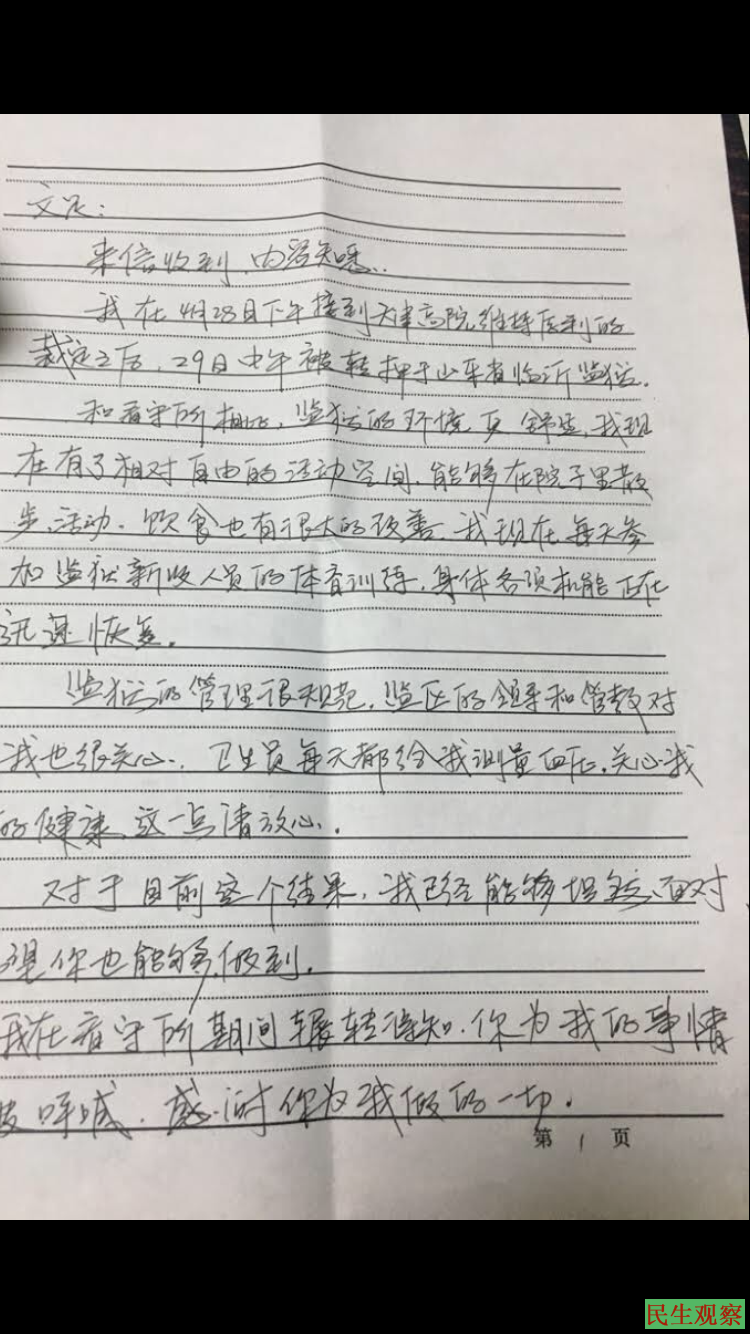 文足：
来信收到，内容知悉。
我在4月28日下午接到天津高院维持原判的
裁定之后，29日中午被转押于山东省临沂监狱。
和看守所相比，监狱的环境更舒适，我现
在有了相对自由的活动空间，能够在院子里散
步、活动、饮食也有很大的改善，我现在每天参
加监狱新收人员的体育训练，身体各项机能正在
迅速恢复。
监狱的管理很规范，监区的领导和管教对
我也很关心，卫生员每天都给我测量血压，关心我
的健康，这一点请放心。
对于目前这个结果，我已经能够坦然面对，
望你也能够做到。
我在看守所期间辗转得知，你为我的事情
呼喊，感谢你为我做的一切。
第 1 页
民生观察